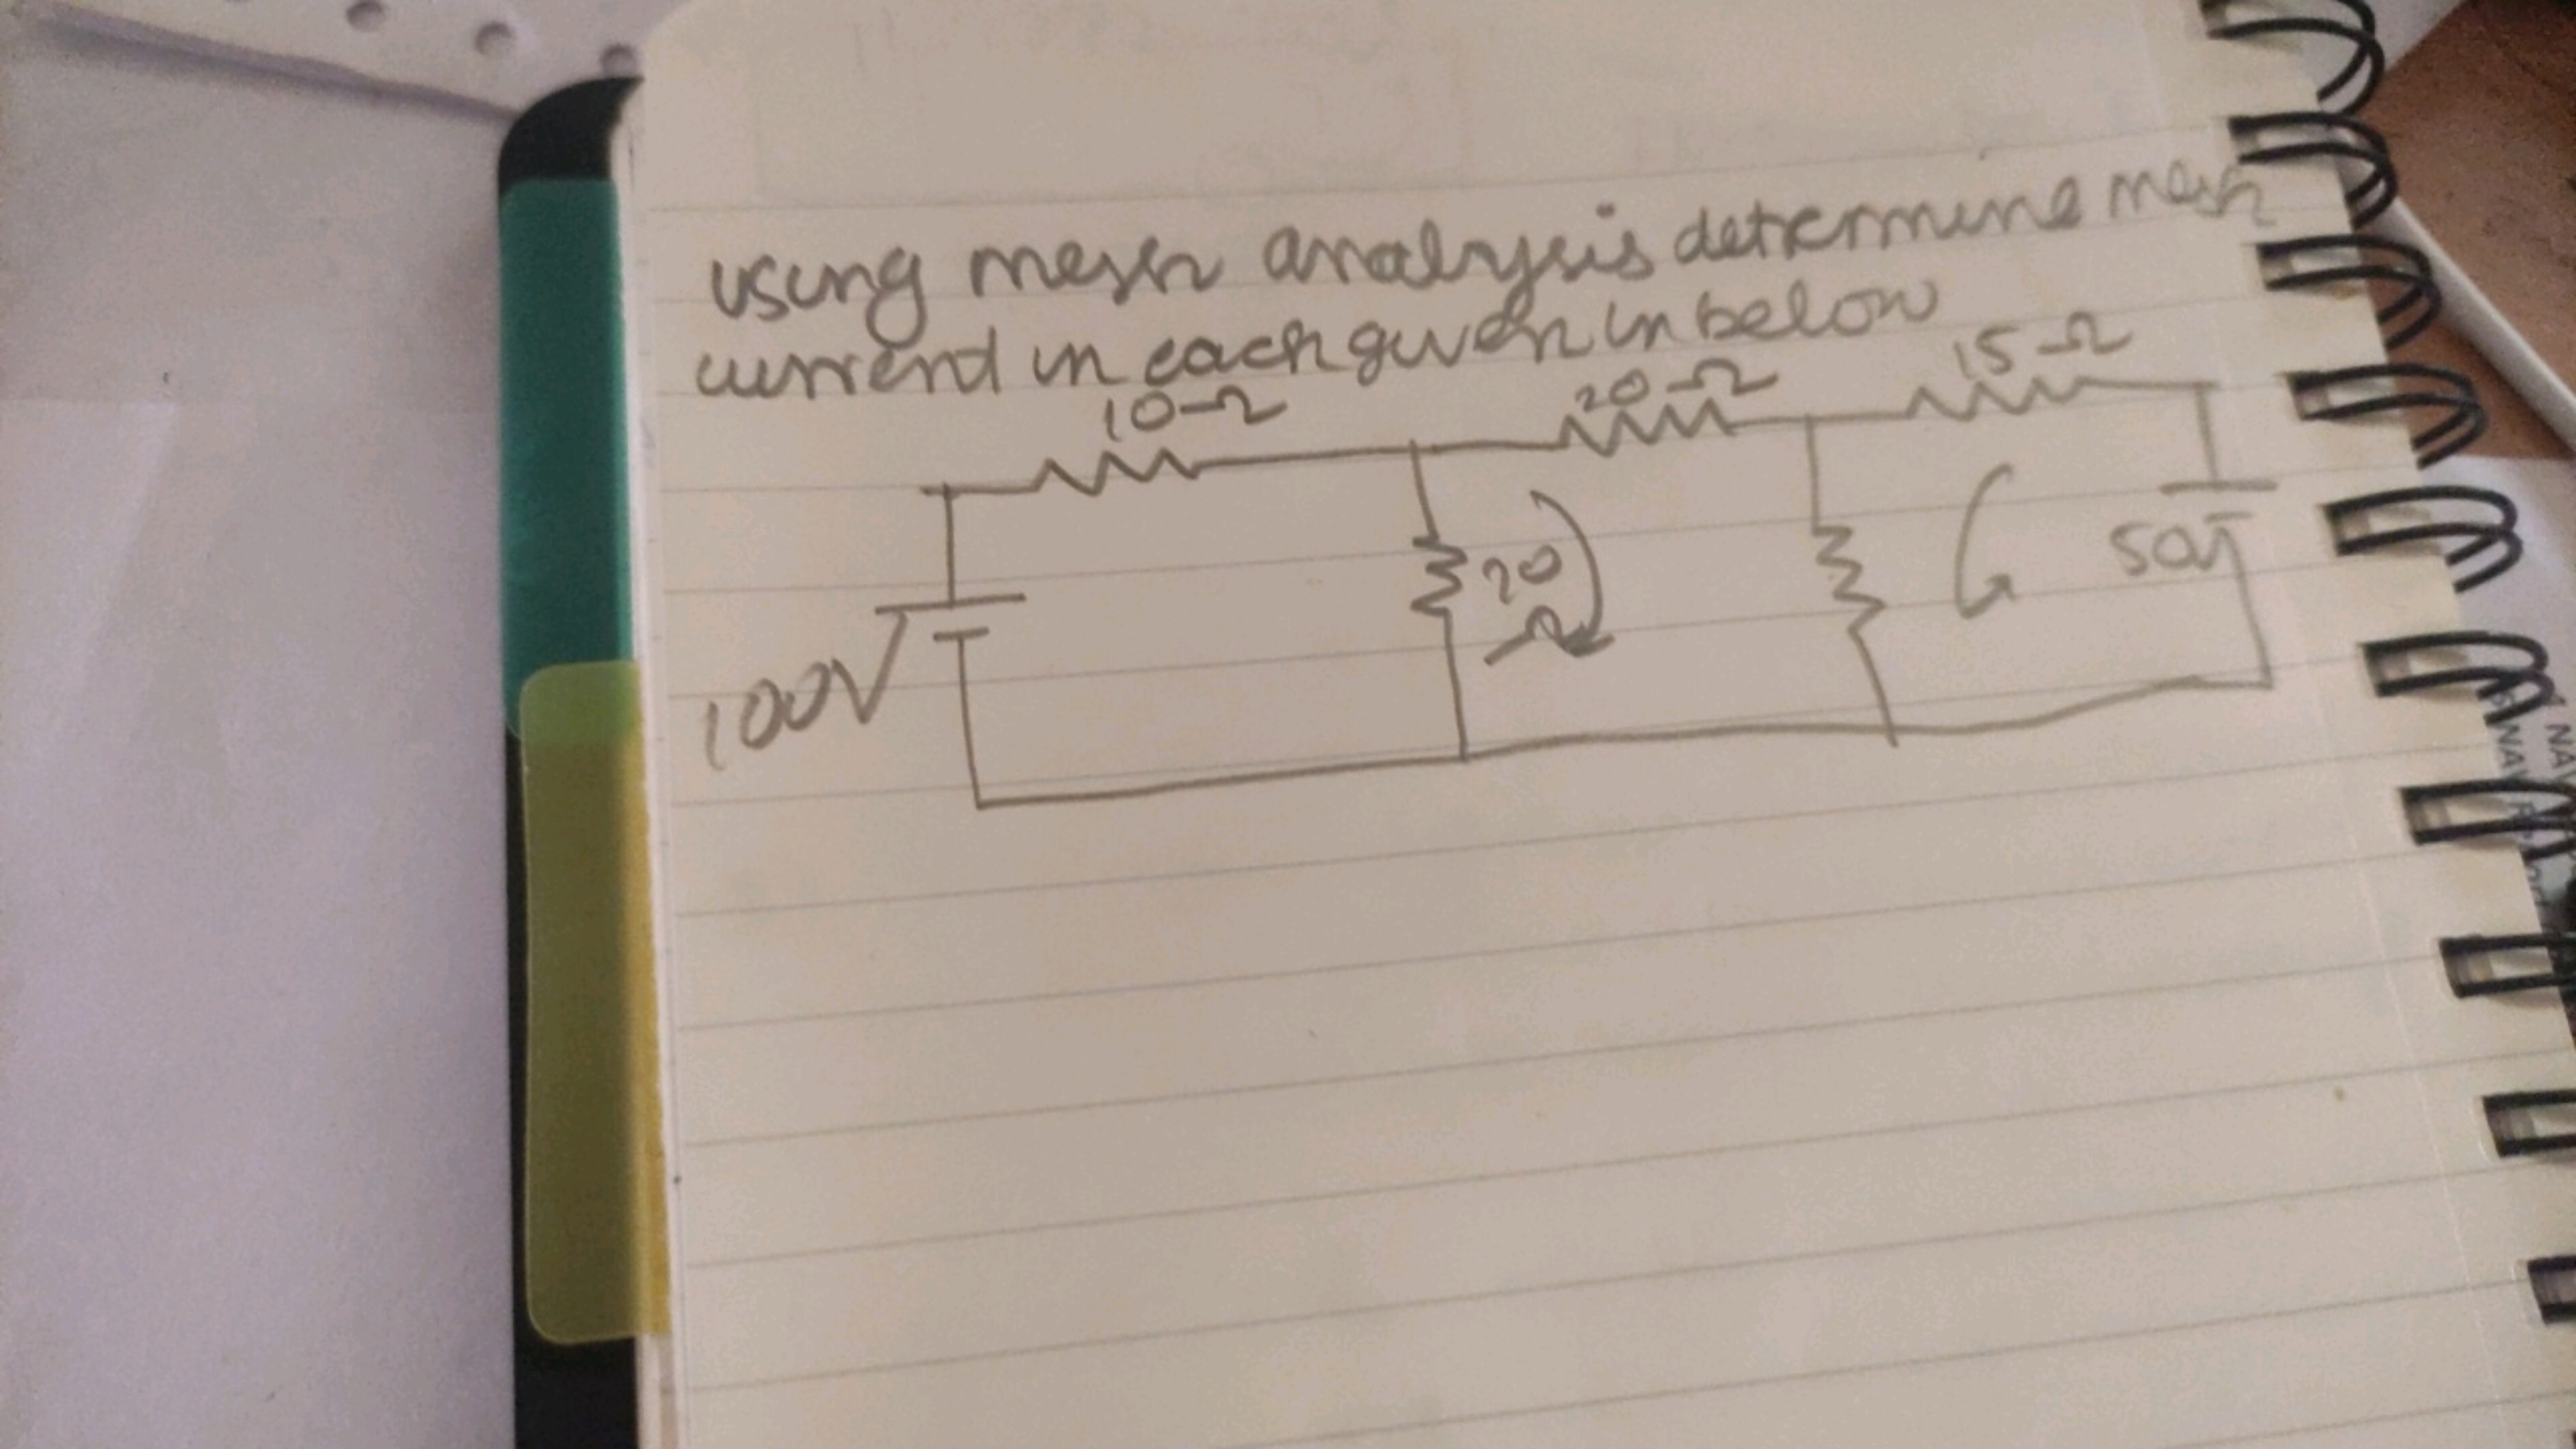 using mesh analysis determine mesh
current in each given in below
10-Ω 20-Ω 15-Ω
100V 20 Ω 50V